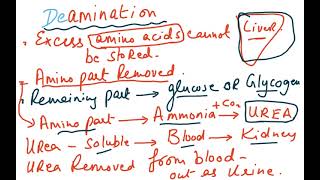 Deamination
Liver
- Excess amino acids cannot
be stored.
- Amino part Removed
- Remaining part → glucose OR Glycogen
→ Amino part → Ammonia +CO2 → UREA
Urea - Soluble → Blood → Kidney
Urea Removed from blood -
out as Urine.